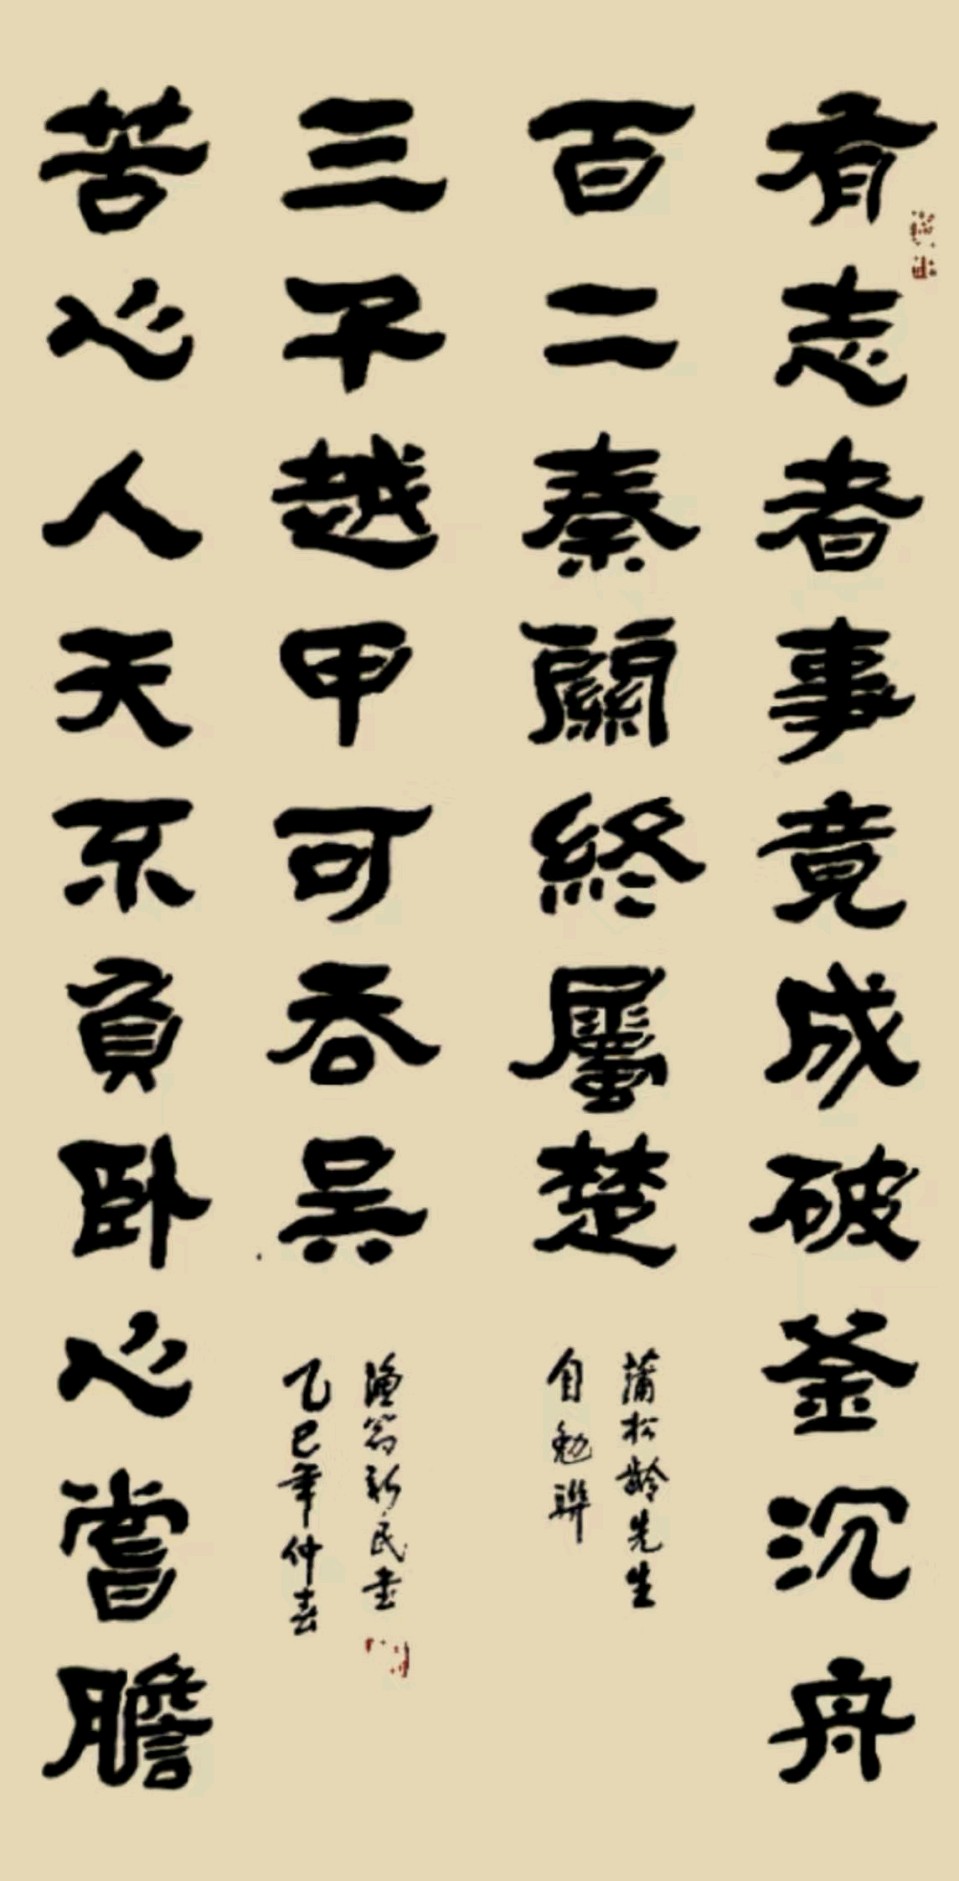 有志者事竟成破釜沉舟
百二秦關終屬楚
蒲松龄先生
自勉聯
苦心人天不負卧心嘗膽
三千越甲可吞吴
漁翁新民書
乙巳年仲春